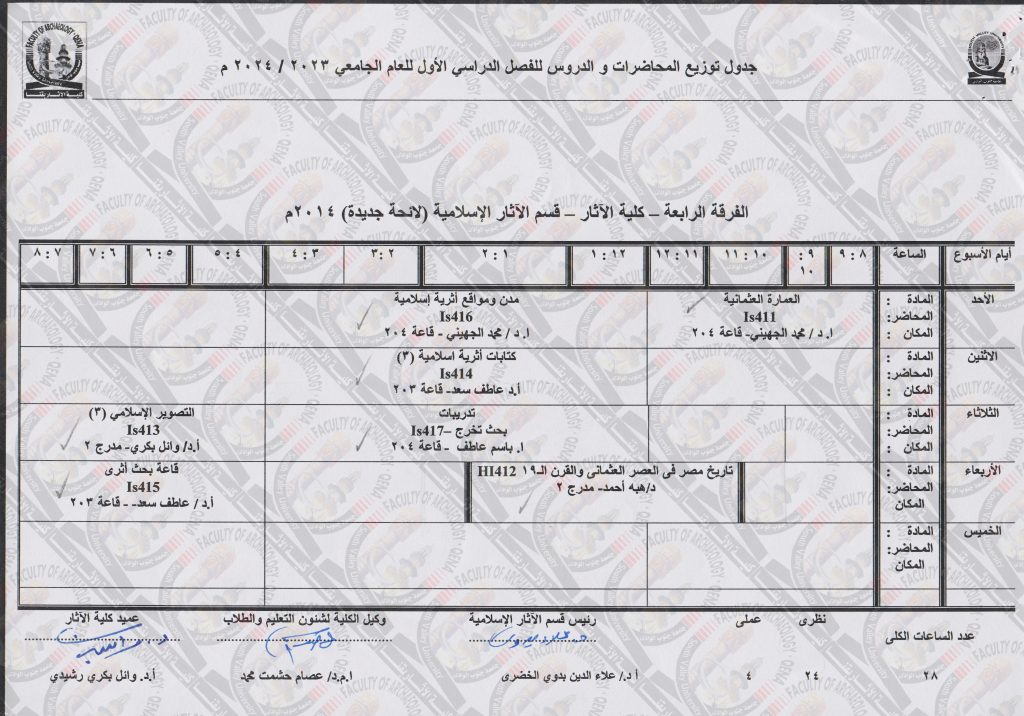 جدول توزيع المحاضرات و الدروس للفصل الدراسي الأول للعام الجامعي ٢٠٢٣ / ٢٠٢٤ م
الفرقة الرابعة – كلية الآثار – قسم الآثار الإسلامية (لائحة جديدة) ٢٠١٤م
أيام الأسبوع الساعة ٨ : ٩ ٩ : ١٠ ١٠ : ١١ ١١ : ١٢ ١٢ : ١ ١ : ٢ ٢ : ٣ ٣ : ٤ ٤ : ٥ ٥ : ٦ ٦ : ٧ ٧ : ٨
الأحد المادة : العمارة العثمانية مدن ومواقع أثرية إسلامية
المحاضر: Is411 Is416
المكان : ا. د / محمد الجهيني- قاعة ٢٠٤ ا. د / محمد الجهيني – قاعة ٢٠٤
الاثنين المادة : كتابات أثرية اسلامية (٣)
المحاضر: Is414
المكان : أ.د عاطف سعد- قاعة ٢٠٣
الثلاثاء المادة : تدريبات التصوير الإسلامي (٣)
المحاضر: بحث تخرج –Is417 Is413
المكان : ا. باسم عاطف – قاعة ٢٠٤ أ.د/ وائل بكري- مدرج ٢
الأربعاء المادة : تاريخ مصر فى العصر العثمانى والقرن الـ١٩ HI412 قاعة بحث أثرى
المحاضر: د/هبه أحمد- مدرج ٢ Is415
المكان أ.د / عاطف سعد- – قاعة ٢٠٣
الخميس المادة :
المحاضر:
المكان
عدد الساعات الكلى نظرى عملى رئيس قسم الآثار الإسلامية وكيل الكلية لشئون التعليم والطلاب عميد كلية الآثار
٢٨ ٢٤ ٤ أ.د/ علاء الدين بدوي الخضري ا.م.د/ عصام حشمت محمد أ.د. وائل بكري رشيدي
FACULTY OF ARCHAEOLOGY - QENA